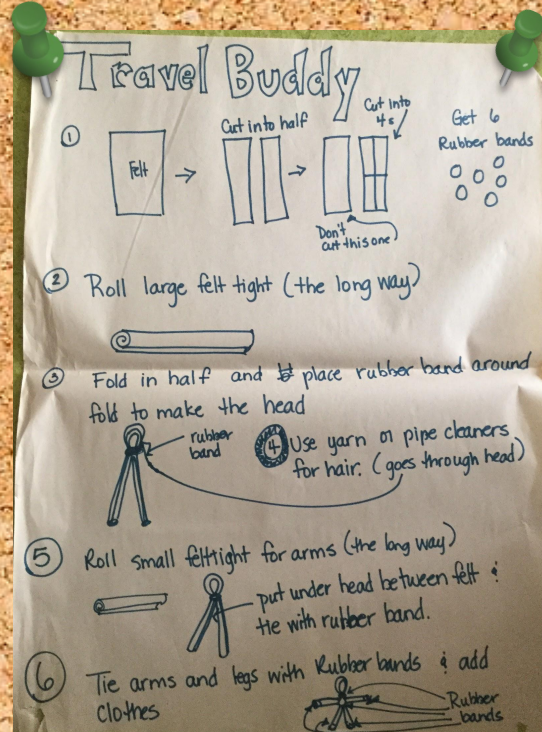 Travel Buddy
①
Felt
Cut into half
Cut into
4s
Don't
cut this one
Get 6
Rubber bands
② Roll large felt tight (the long way)
③ Fold in half and place rubber band around
fold to make the head
rubber
band
④ Use yarn or pipe cleaners
for hair. (goes through head)
⑤ Roll small felt tight for arms (the long way)
put under head between felt &
tie with rubber band.
⑥ Tie arms and legs with Rubber bands & add
clothes
Rubber
bands